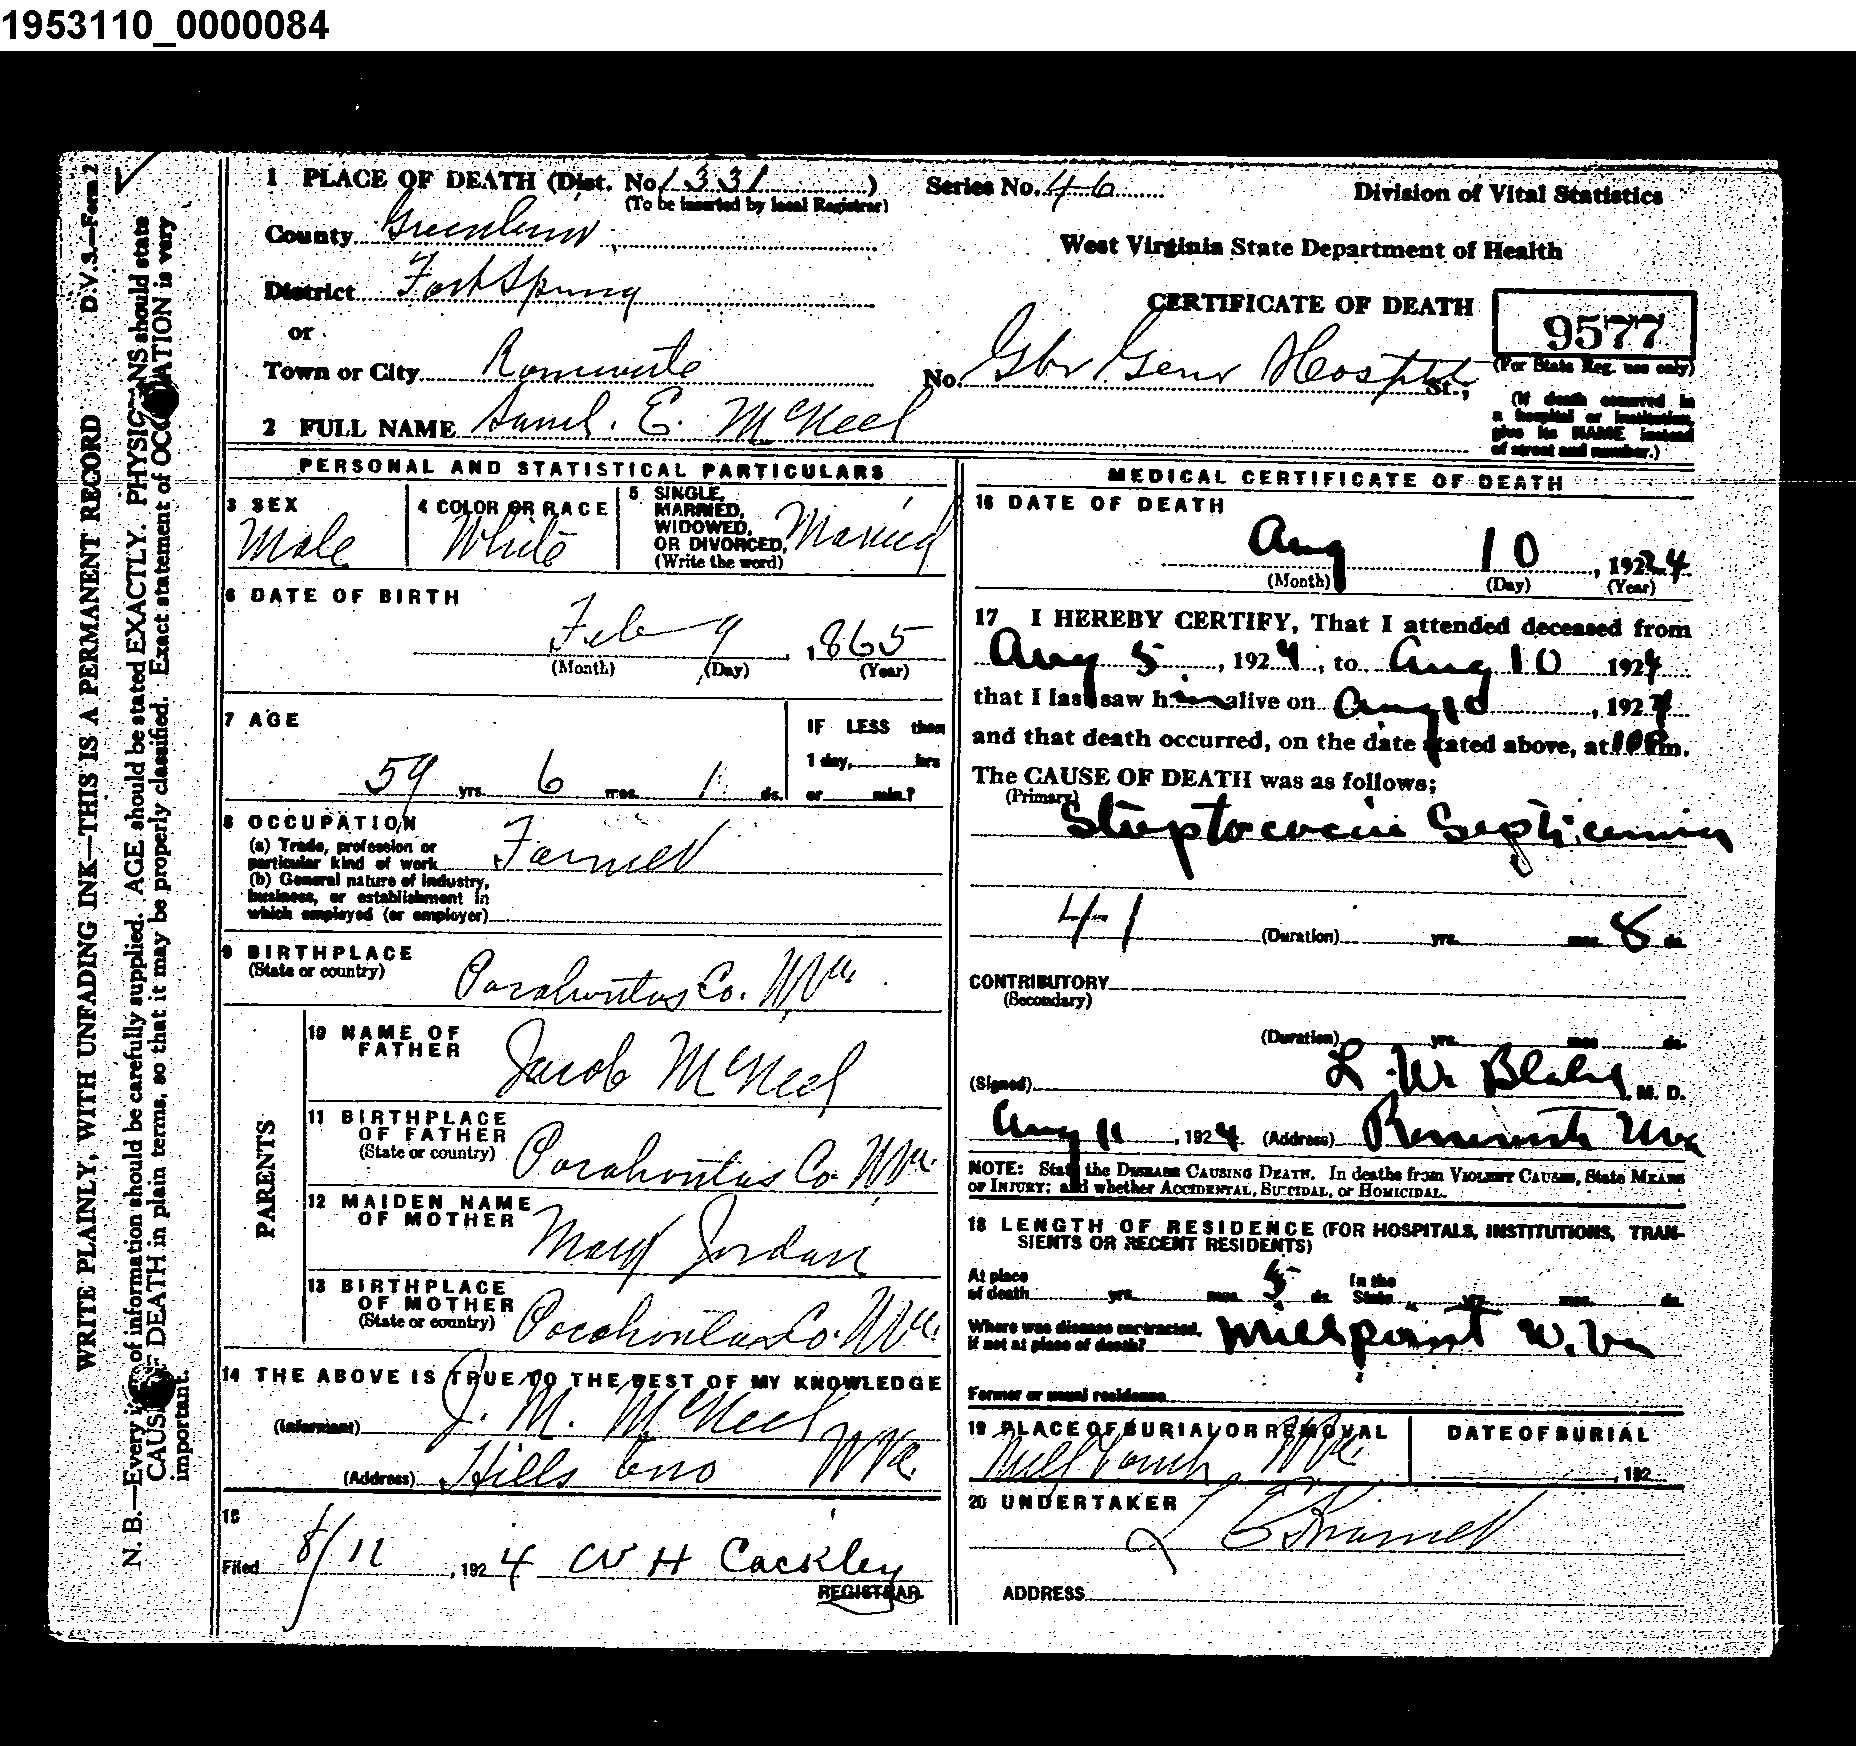 1953110_0000084
D.V.S.—Form 2
WRITE PLAINLY, WITH UNFADING INK—THIS IS A PERMANENT RECORD
N. B.—Every of information should be carefully supplied. AGE should be stated EXACTLY. PHYSICIANS should state
CAUSE DEATH in plain terms, so that it may be properly classified. Exact statement of OCCUPATION is very
important.
1 PLACE OF DEATH (Dist. No. 1331 ) Series No. 46 Division of Vital Statistics
(To be inserted by local Registrar)
County Greenbrier
West Virginia State Department of Health
District Fort Spring
or
CERTIFICATE OF DEATH 9577
(For State Reg. use only)
Town or City Ronceverte No. Gbr Genr Hospital St.,
(If death occurred in
a hospital or institution,
give its NAME instead
of street and number.)
2 FULL NAME Saml. E. McNeel
PERSONAL AND STATISTICAL PARTICULARS
3 SEX
Male
4 COLOR OR RACE
White
5 SINGLE,
MARRIED,
WIDOWED,
OR DIVORCED,
(Write the word)
Married
6 DATE OF BIRTH
Feb 9, 1865
(Month) (Day) (Year)
7 AGE
59 yrs. 6 mos. 1 ds.
IF LESS than
1 day, hrs
or min.?
8 OCCUPATION
(a) Trade, profession or
particular kind of work Farmer
(b) General nature of industry,
business, or establishment in
which employed (or employer)
9 BIRTHPLACE
(State or country)
Pocahontas Co. W Va.
PARENTS
10 NAME OF
FATHER
Jacob McNeel
11 BIRTHPLACE
OF FATHER
(State or country)
Pocahontas Co. W Va.
12 MAIDEN NAME
OF MOTHER
Mary Jordan
13 BIRTHPLACE
OF MOTHER
(State or country)
Pocahontas Co. W Va.
14 THE ABOVE IS TRUE TO THE BEST OF MY KNOWLEDGE
(Informant) J. M. McNeel
(Address) Hillsboro W Va.
15
Filed 8/11, 1924 W H Cackley
REGISTRAR
MEDICAL CERTIFICATE OF DEATH
16 DATE OF DEATH
Aug 10, 1924
(Month) (Day) (Year)
17 I HEREBY CERTIFY, That I attended deceased from
Aug 5, 1924, to Aug 10 1924
that I last saw him alive on Aug 10, 1924
and that death occurred, on the date stated above, at m.
The CAUSE OF DEATH was as follows;
(Primary)
Streptococcic Septicemia
41 (Duration) yrs. mos. 8 ds.
CONTRIBUTORY
(Secondary)
(Duration) yrs. mos ds.
(Signed) L. W. M. D.
Aug 11, 1924 (Address) Ronceverte W Va
NOTE: State the DISEASE CAUSING DEATH. In deaths from VIOLENT CAUSES, State MEANS
OF INJURY; and whether ACCIDENTAL, SUICIDAL, or HOMICIDAL.
18 LENGTH OF RESIDENCE (FOR HOSPITALS, INSTITUTIONS, TRAN-
SIENTS OR RECENT RESIDENTS)
At place
of death yrs. mos. 5 ds. In the
State yrs. mos. ds.
Where was disease contracted,
if not at place of death? Millpoint W. Va
Former or usual residence
19 PLACE OF BURIAL OR REMOVAL
W Va
DATE OF BURIAL
, 192
20 UNDERTAKER
L E
ADDRESS